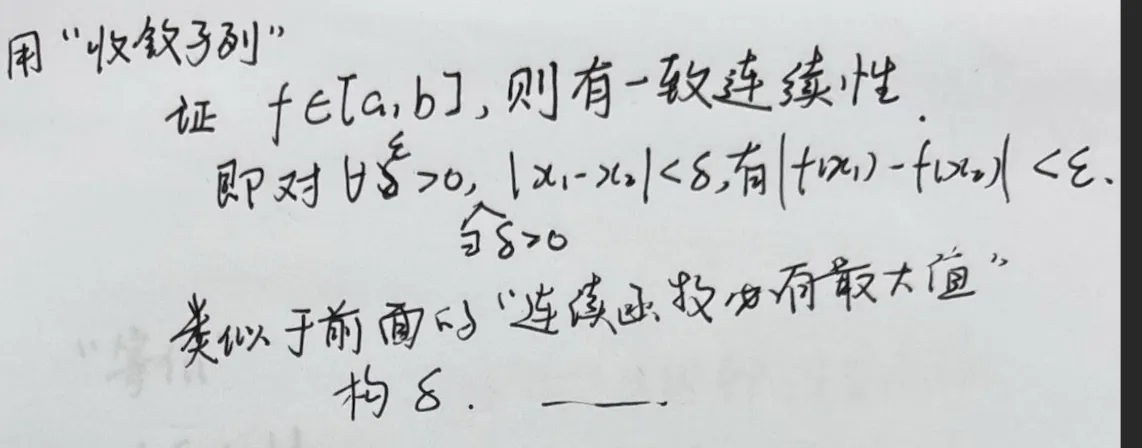 用“收敛子列”
证 f∈[a,b],则有一致连续性.
即对 ∀ε>0, ∃δ>0 |x₁-x₂|<δ,有|f(x₁)-f(x₂)|<ε.
类似于前面的“连续函数必有最大值”
构 δ. ——.